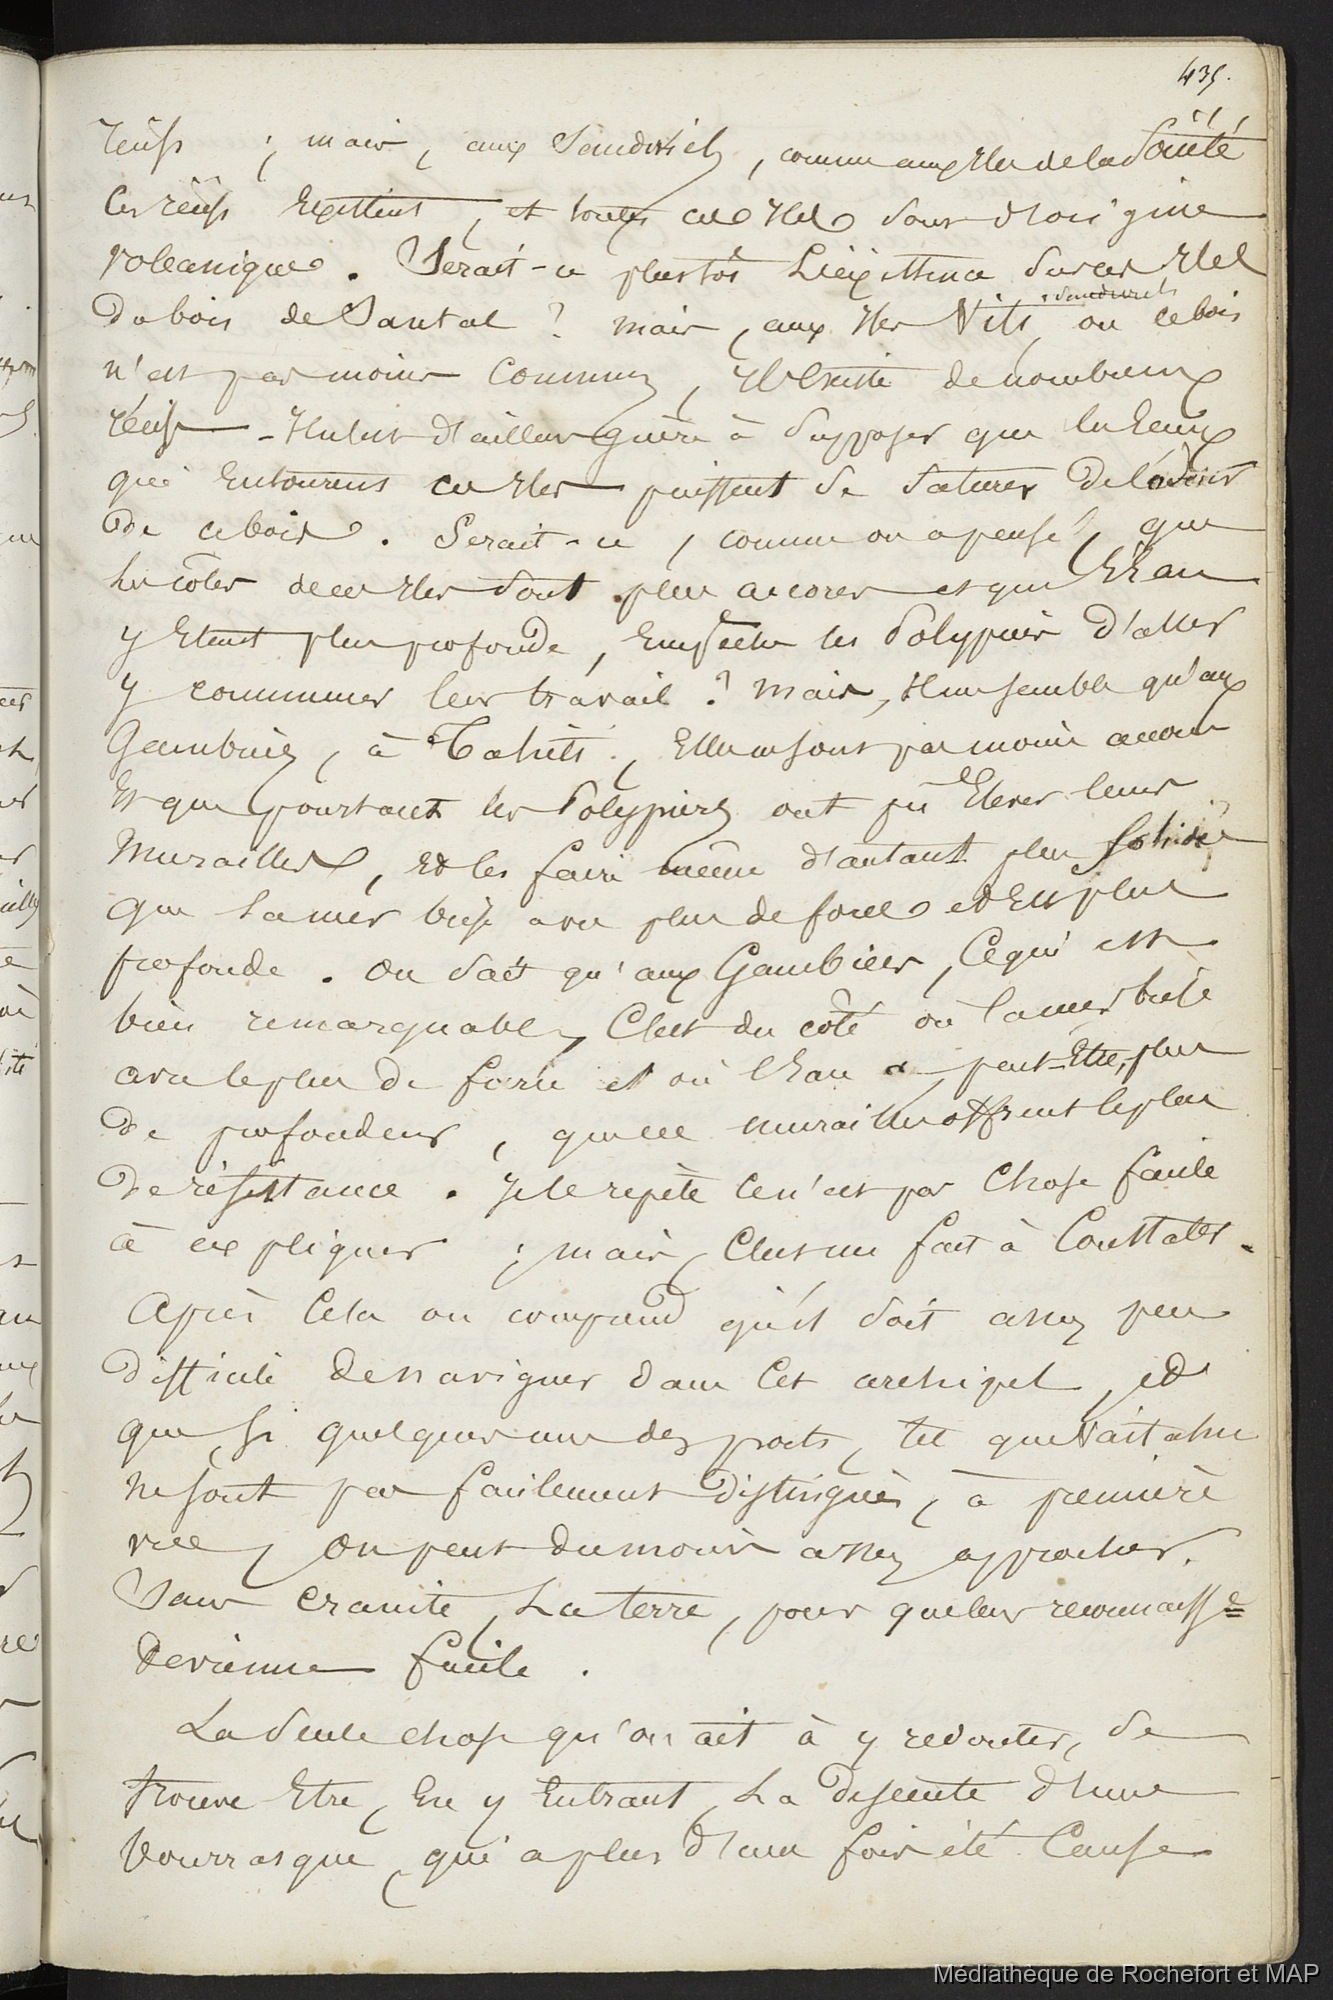 435.
récifs ; mais, aux Sandwich, comme aux Iles de la Société
les récifs existent, et toutes ces Iles sont d'origine
volcanique. Serait-ce plustôt l'existence sur ces Iles
du bois de Santal ? mais, aux Iles Viti, où ce bois
Sandwich
n'est pas moins commun, il existe de nombreux
récifs - Il n'est d'ailleurs guère à supposer que les Eaux
qui entourent ces Iles puissent se saturer de l'odeur
de ce bois. Serait-ce, comme on a pensé, que
les côtes de ces Iles sont plus accores et que l'Eau
y étant plus profonde, empêche les Polypiers d'aller
y commencer leur travail ? mais, il me semble qu'aux
Gambier, à Tahiti, Elles ne sont pas moins accores
Et que pourtant les Polypiers ont pû Elever leurs
murailles, et les faire même d'autant plus solides
que la mer brise avec plus de force et est plus
profonde. On sait qu'aux Gambier, ce qui est
bien remarquable, c'est du côté où la mer brise
avec le plus de force et où l'Eau a peut-Etre, plus
de profondeur, que ces murailles offrent le plus
de résistance. Je le repète ce n'est pas chose facile
à expliquer ; mais, c'est un fait à constater.
Après cela on comprend qu'il soit assez peu
difficile de naviguer dans cet archipel, et
que, si quelques uns des ports, tel que Vaitahu
ne sont pas facilement distingués, à première
vue, on peut du moins assez approcher,
sans crainte, la terre, pour que leur reconnaiss=e
devienne facile.
La seule chose qu'on ait à y redouter, se
trouve Etre, en y Entrant, la descente d'une
bourrasque, qui a plus d'une fois été cause
Médiathèque de Rochefort et MAP